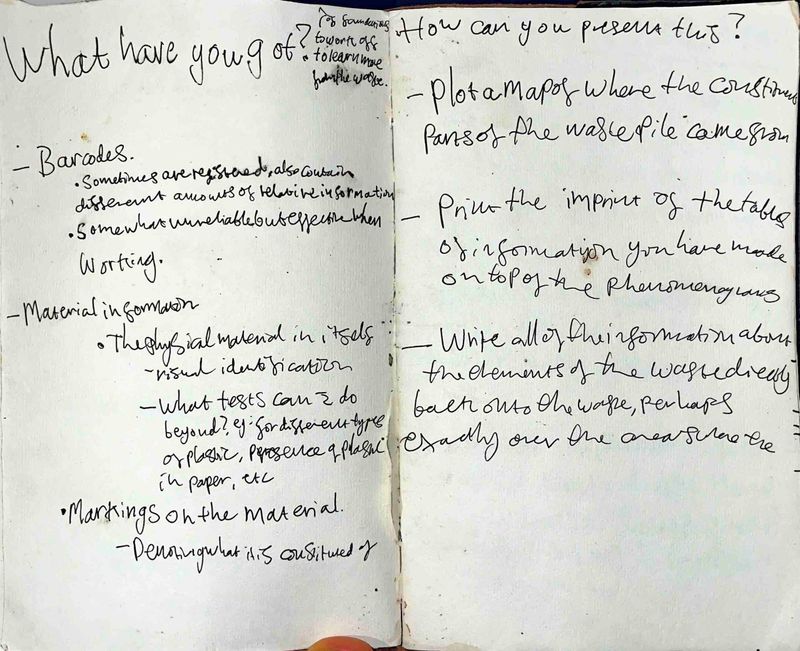 What have you got?
of foundations
to work off
to learn more
from the waste.
- Barcodes.
• Sometimes are registered, also contain
different amounts of relative information
• Somewhat unreliable but effective when
working.
- Material information
• The physical material in itself
- visual identification
- What tests can I do
beyond? eg: for different types
of plastic, presence of plastic
in paper, etc
• Markings on the material.
- Denoting what it is constituted of
How can you present this?
- Plot a map of where the constituent
parts of the waste pile came from
- Print the imprint of the tables
of information you have made
on top of the phenomenograms
- Write all of the information about
the elements of the waste directly
back onto the waste, perhaps
exactly over the area where the